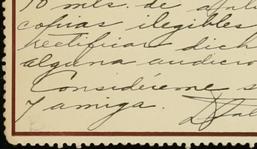 mls. de
copias ilegibles
Rectificar dich
alguna
Considéreme s
y amiga.